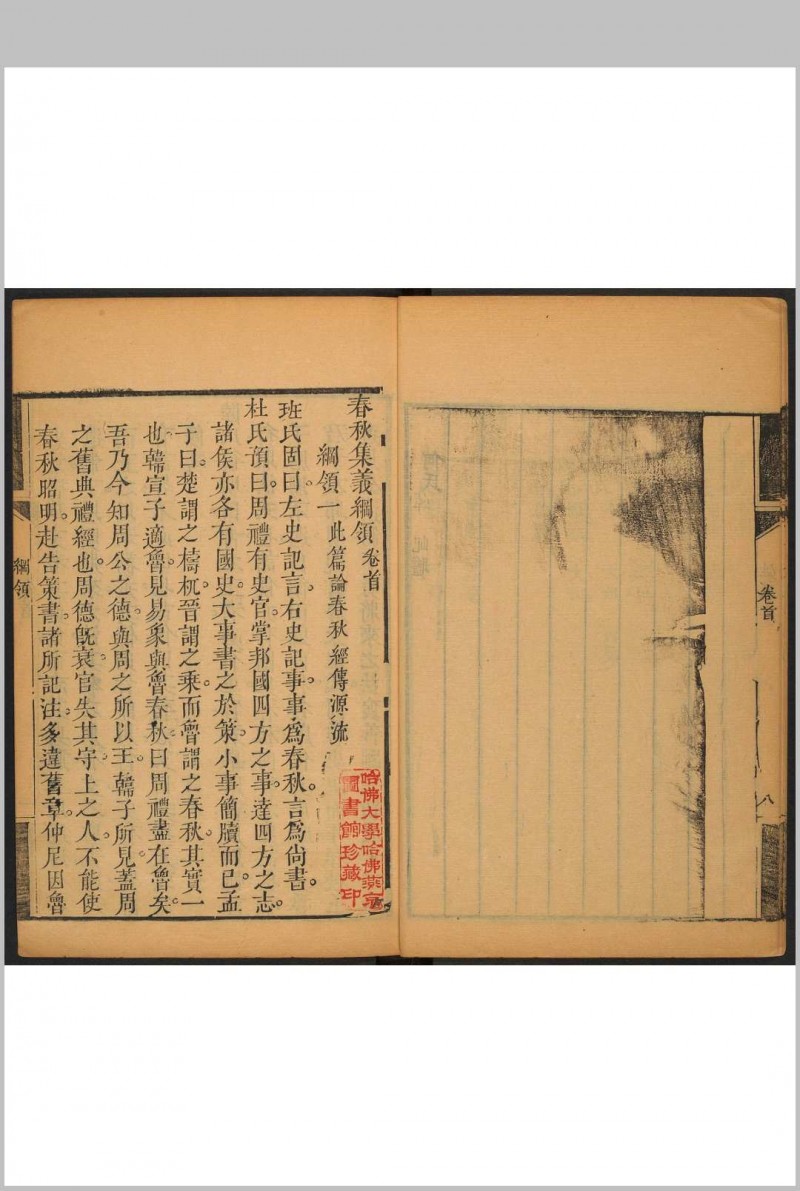 卷首
八
春秋集義綱領 卷首
綱領一 此篇論春秋經傳源流
班氏固曰左史記言。右史記事。事為春秋。言為尚書。
杜氏預曰。周禮有史官。掌邦國四方之事。達四方之志。
諸侯亦各有國史。大事書之於策。小事簡牘而已。孟
子曰。楚謂之檮杌。晉謂之乘。而魯謂之春秋。其實一
也。韓宣子適魯。見易象與魯春秋。曰周禮盡在魯矣。
吾乃今知周公之德。與周之所以王。韓子所見。蓋周
之舊典禮經也。周德旣衰。官失其守。上之人。不能使
春秋昭明。赴告策書。諸所記注。多違舊章。仲尼因魯
綱領
哈佛大學哈佛燕京
圖書館珍藏印